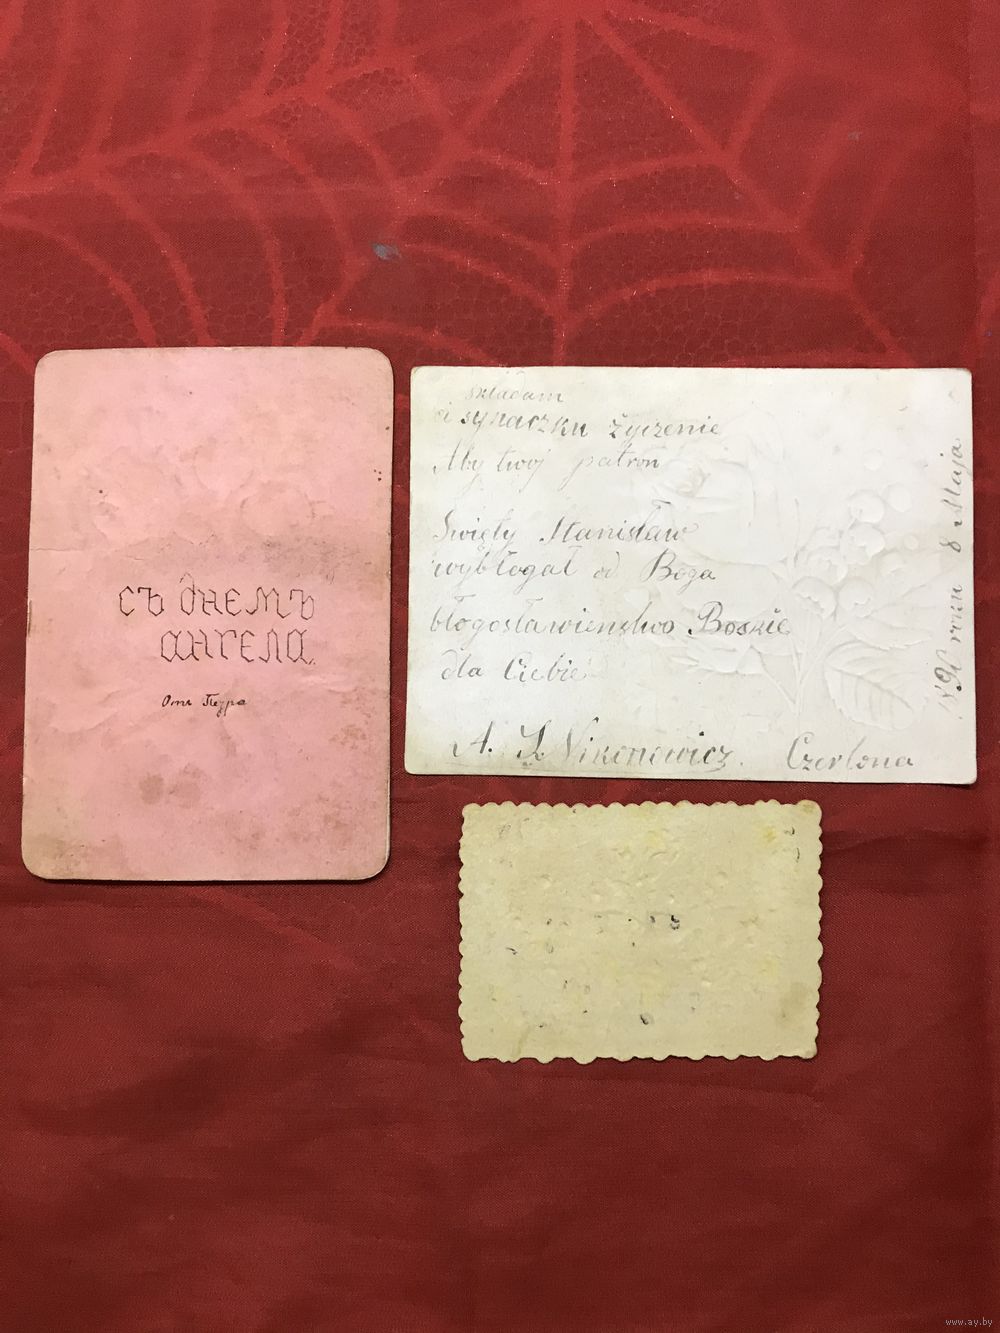 съ днемъ
ангела.
Отъ Петра
składam
ci synaczku życzenie
Aby twoj patron
Święty Stanisław
wybłogał od Boga
błogosławienstwo Boskie
dla Ciebie
A. S. Nikonowicz. Czerlona
1890 roku 8 Maja
www.ay.by